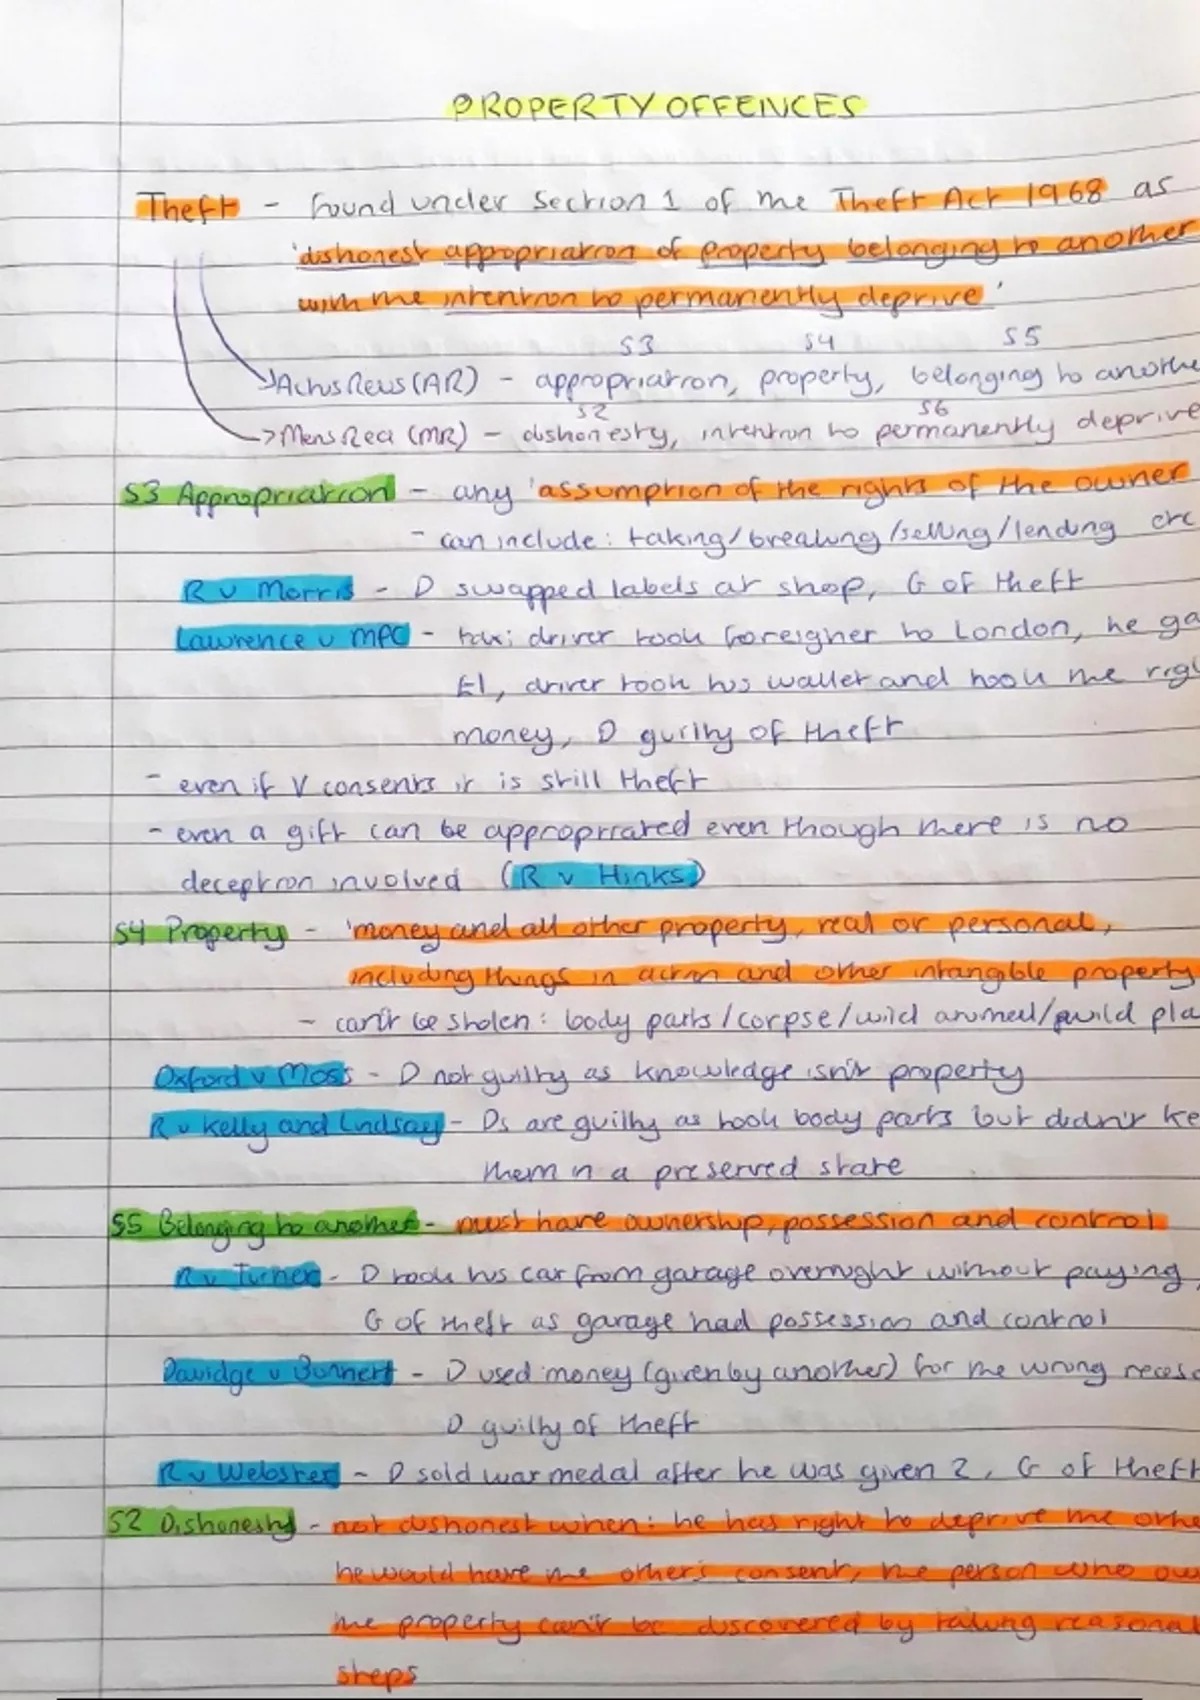 PROPERTY OFFENCES
Theft - found under Section 1 of the Theft Act 1968 as
'dishonest appropriation of property belonging to another
with the intention to permanently deprive'
S3 S4 S5
Actus Reus (AR) - appropriation, property, belonging to anothe
S2 S6
Mens Rea (MR) - dishonesty, intention to permanently deprive
S3 Appropriation - any 'assumption of the rights of the owner
- can include: taking/breaking/selling/lending etc
R v Morris - D swapped labels at shop, G of theft
Lawrence v MPC - taxi driver took foreigner to London, he ga
£1, driver took his wallet and took the rig
money, D guilty of theft
- even if V consents it is still theft
- even a gift can be appropriated even though there is no
deception involved (R v Hinks)
S4 Property - 'money and all other property, real or personal,
including things in action and other intangible property
- can't be stolen: body parts/corpse/wild animal/wild pla
Oxford v Moss - D not guilty as knowledge isn't property
R v Kelly and Lindsay - Ds are guilty as took body parts but didn't ke
them in a preserved state
S5 Belonging to another - must have ownership, possession and control
R v Turner - D took his car from garage overnight without paying,
G of theft as garage had possession and control
Davidge v Bunnett - D used money (given by another) for the wrong reaso
D guilty of theft
R v Webster - D sold war medal after he was given 2, G of theft
S2 Dishonesty - not dishonest when: he has right to deprive the othe
he would have the other's consent, the person who ow
the property can't be discovered by taking reasonal
steps